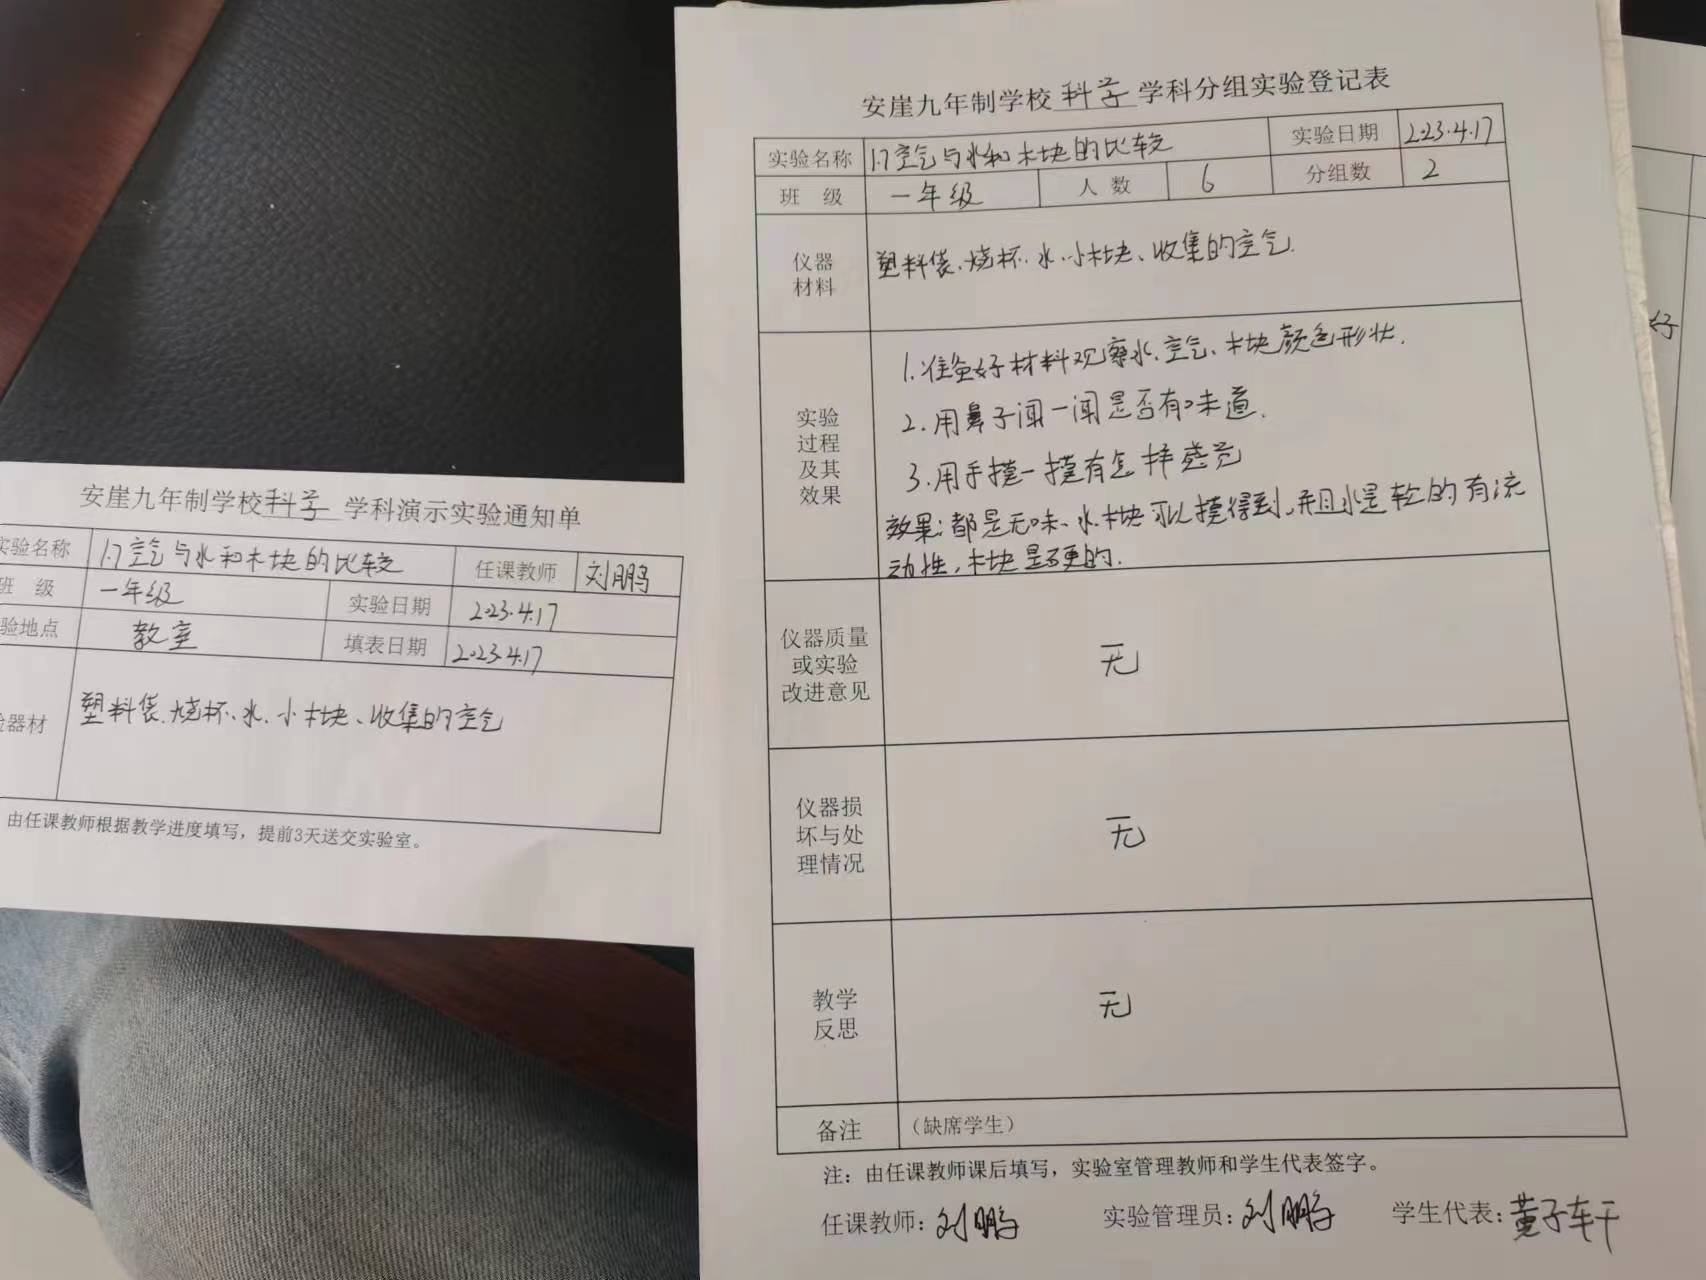 安崖九年制学校科学学科分组实验登记表
实验名称 1.7空气与水和木块的比较 实验日期 2023.4.17
班 级 一年级 人 数 6 分组数 2
仪器
材料
塑料袋、烧杯、水、小木块、收集的空气.
实验
过程
及其
效果
1.准备好材料观察水、空气、木块颜色形状.
2.用鼻子闻一闻是否有味道.
3.用手摸一摸有怎样感觉
效果:都是无味、水、木块可以摸得到,并且水是软的有流
动性,木块是硬的.
仪器质量
或实验
改进意见
无
仪器损
坏与处
理情况
无
教学
反思
无
备注 (缺席学生)
注: 由任课教师课后填写,实验室管理教师和学生代表签字。
任课教师: 刘鹏 实验管理员: 刘鹏 学生代表: 黄子轩
安崖九年制学校科学学科演示实验通知单
实验名称 1.7空气与水和木块的比较 任课教师 刘鹏
班 级 一年级 实验日期 2023.4.17
验地点 教室 填表日期 2023.4.17
验器材 塑料袋、烧杯、水、小木块、收集的空气
由任课教师根据教学进度填写,提前3天送交实验室。
好